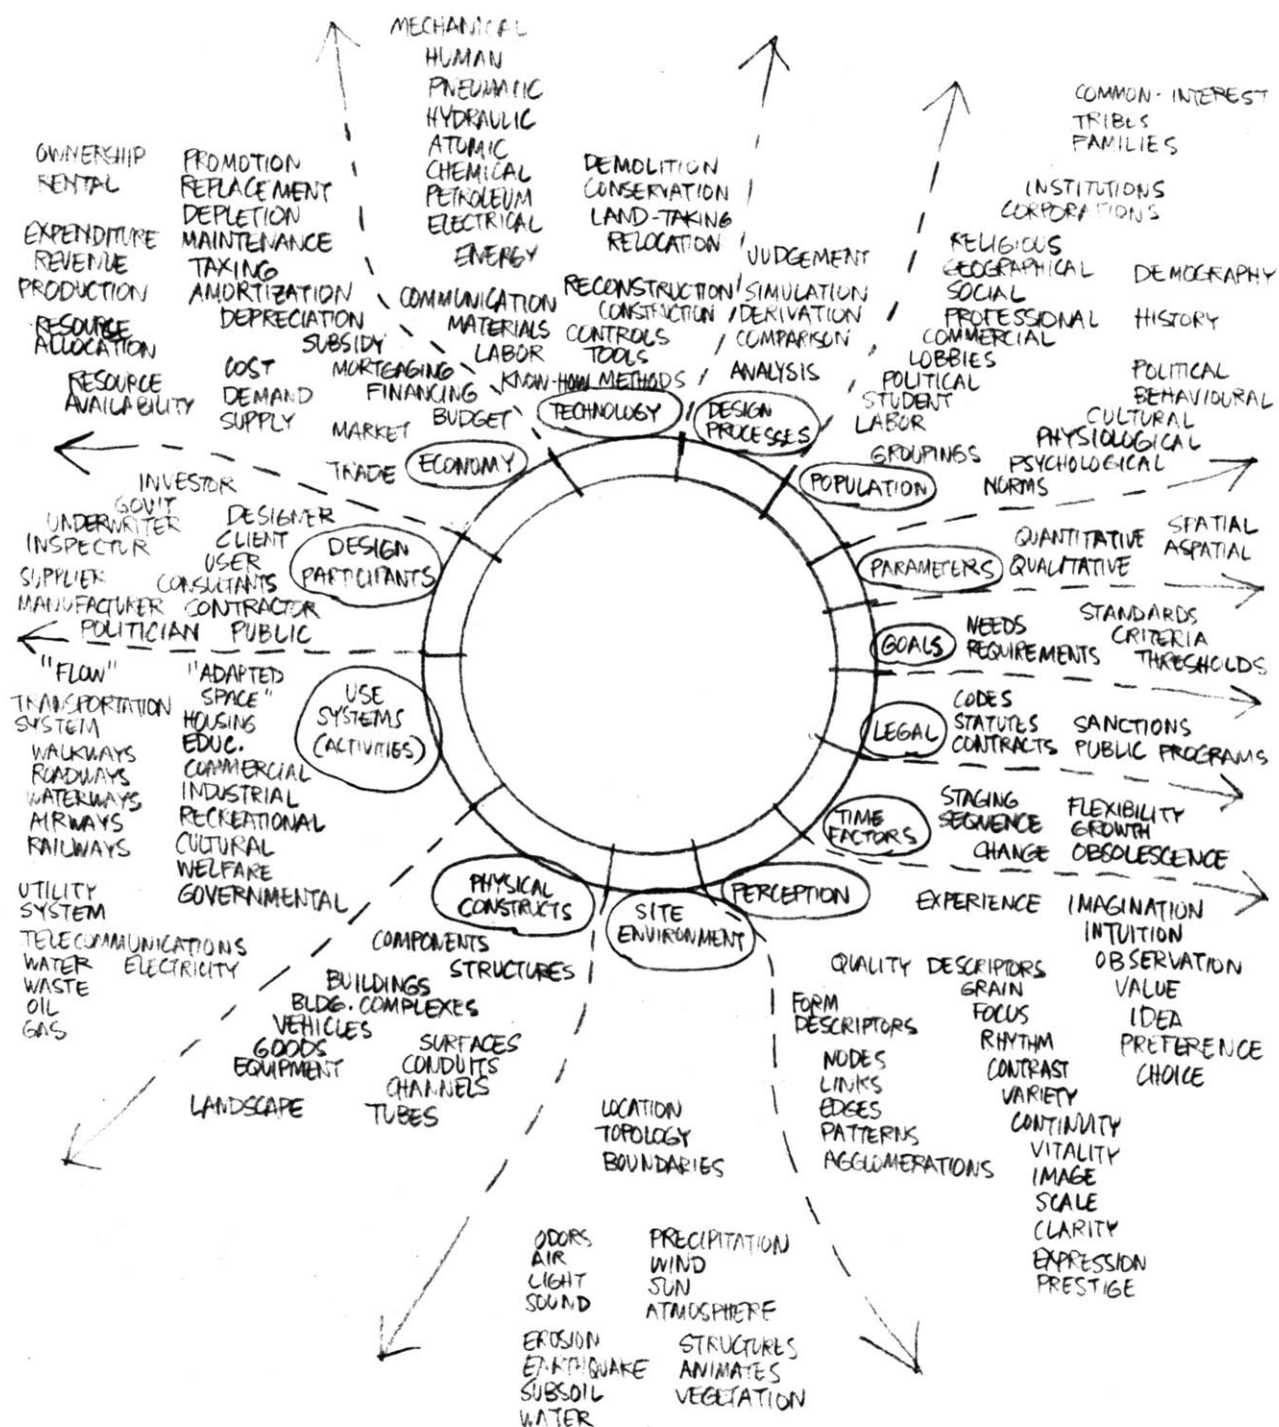 MECHANICAL
HUMAN
PNEUMATIC
HYDRAULIC
ATOMIC
CHEMICAL
PETROLEUM
ELECTRICAL
ENERGY
COMMUNICATION
MATERIALS
LABOR
DEMOLITION
CONSERVATION
LAND-TAKING
RELOCATION
RECONSTRUCTION
CONSTRUCTION
CONTROLS
TOOLS
KNOW-HOW METHODS
TECHNOLOGY
JUDGEMENT
SIMULATION
DERIVATION
COMPARISON
ANALYSIS
DESIGN
PROCESSES
COMMON-INTEREST
TRIBES
FAMILIES
INSTITUTIONS
CORPORATIONS
RELIGIOUS
GEOGRAPHICAL
SOCIAL
PROFESSIONAL
COMMERCIAL
LOBBIES
POLITICAL
STUDENT
LABOR
GROUPINGS
DEMOGRAPHY
HISTORY
POLITICAL
BEHAVIOURAL
CULTURAL
PHYSIOLOGICAL
PSYCHOLOGICAL
NORMS
POPULATION
QUANTITATIVE
QUALITATIVE
SPATIAL
ASPATIAL
PARAMETERS
GOALS
NEEDS
REQUIREMENTS
STANDARDS
CRITERIA
THRESHOLDS
LEGAL
CODES
STATUTES
CONTRACTS
SANCTIONS
PUBLIC PROGRAMS
TIME
FACTORS
STAGING
SEQUENCE
CHANGE
FLEXIBILITY
GROWTH
OBSOLESCENCE
PERCEPTION
EXPERIENCE
IMAGINATION
INTUITION
OBSERVATION
VALUE
IDEA
PREFERENCE
CHOICE
QUALITY DESCRIPTORS
GRAIN
FOCUS
RHYTHM
CONTRAST
VARIETY
CONTINUITY
VITALITY
IMAGE
SCALE
CLARITY
EXPRESSION
PRESTIGE
FORM
DESCRIPTORS
NODES
LINKS
EDGES
PATTERNS
AGGLOMERATIONS
SITE
ENVIRONMENT
LOCATION
TOPOLOGY
BOUNDARIES
ODORS
AIR
LIGHT
SOUND
PRECIPITATION
WIND
SUN
ATMOSPHERE
EROSION
EARTHQUAKE
SUBSOIL
WATER
STRUCTURES
ANIMATES
VEGETATION
PHYSICAL
CONSTRUCTS
COMPONENTS
STRUCTURES
BUILDINGS
BLDG. COMPLEXES
VEHICLES
GOODS
EQUIPMENT
LANDSCAPE
SURFACES
CONDUITS
CHANNELS
TUBES
USE
SYSTEMS
(ACTIVITIES)
"FLOW"
TRANSPORTATION
SYSTEM
WALKWAYS
ROADWAYS
WATERWAYS
AIRWAYS
RAILWAYS
UTILITY
SYSTEM
TELECOMMUNICATIONS
WATER ELECTRICITY
WASTE
OIL
GAS
"ADAPTED
SPACE"
HOUSING
EDUC.
COMMERCIAL
INDUSTRIAL
RECREATIONAL
CULTURAL
WELFARE
GOVERNMENTAL
DESIGN
PARTICIPANTS
INVESTOR
GOV'T
UNDERWRITER
INSPECTUR
SUPPLIER
MANUFACTURER
POLITICIAN
DESIGNER
CLIENT
USER
CONSULTANTS
CONTRACTOR
PUBLIC
ECONOMY
OWNERSHIP
RENTAL
EXPENDITURE
REVENUE
PRODUCTION
RESOURCE
ALLOCATION
RESOURCE
AVAILABILITY
PROMOTION
REPLACEMENT
DEPLETION
MAINTENANCE
TAXING
AMORTIZATION
DEPRECIATION
SUBSIDY
COST
DEMAND
SUPPLY
MORTGAGING
FINANCING
BUDGET
MARKET
TRADE